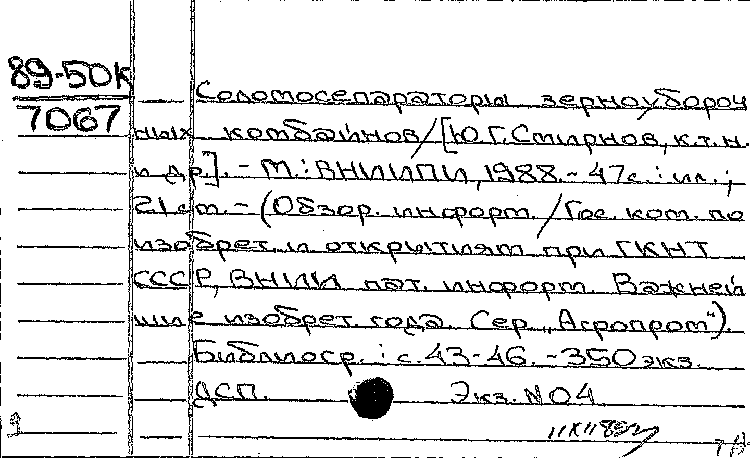 89-50к
7067
Соломосепараторы зерноубороч
ных комбайнов/[Ю.Г.Смирнов, к.т.н.
и др.]. - М.: ВНИИПИ, 1988. - 47с.: ил.;
21 см. - (Обзор. информ. / Гос. ком. по
изобрет. и открытиям при ГКНТ
СССР, ВНИИ пат. информ. Важней
шие изобрет. года. Сер. „Агропром").
Библиогр.: с. 43-46. - 350 экз.
ДСП. Экз. №04